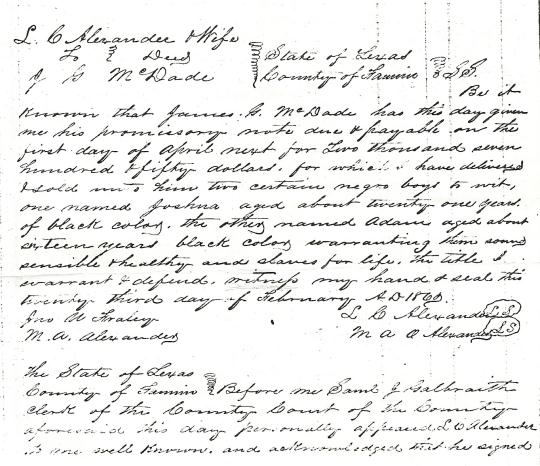 L. C Alexander & Wife
To } Deed State of Texas
J G McDade County of Fannin } SS.
Be it
Known that James. G. McDade has this day given
me his promissory note due & payable on the
first day of April next for Two thousand seven
hundred & fifty dollars. for which I have delivered
& sold unto him two certain negro boys to wit,
one named Joshua aged about twenty one years.
of black color. the other named Adam aged about
sixteen years black color warranting them sound
sensible & healthy and slaves for life. the title I
warrant & defend. witness my hand & seal this
twenty third day of February AD 1860.
Jno L C Alexander LS
M. A. Alexander M A Alexander LS
The State of Texas
County of Fannin } Before me Saml J Galbraith
clerk of the County Court of the County
aforesaid this day personally appeared L C Alexander
to me well known. and acknowledged that he signed